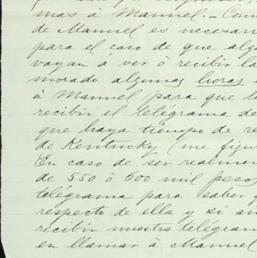 mas á Manuel.- Com
de Manuel es necesar
para el caso de que alg
vayan á ver ó recibir la
morado algunas horas
á Manuel para que
recibir el telégrama de
que haya tiempo de re
de Kentucky (me figu
En caso de ser realmen
de 550 ó 600 mil peso
telégrama para saber
respecto de ella y si
recibir nuestro telégram
en llamar á Manuel